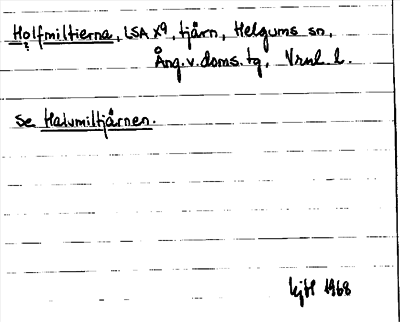 Holfmiltierna, LSA X9, tjärn, Helgums sn,
Ång.v.doms.tg, Vrnl. l.
Se Halvmiltjärnen.
1968